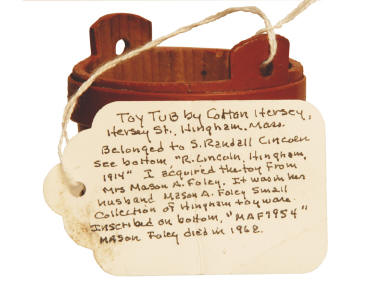 Toy Tub by Cotton Hersey,
Hersey St., Hingham, Mass.
Belonged to S. Randall Lincoln
See bottom, "R. Lincoln, Hingham,
1914" I acquired the toy from
Mrs Mason A. Foley. It was in her
husband Mason A. Foley small
Collection of Hingham toy ware.
Inscribed on bottom, "MAF 1954"
Mason Foley died in 1962.